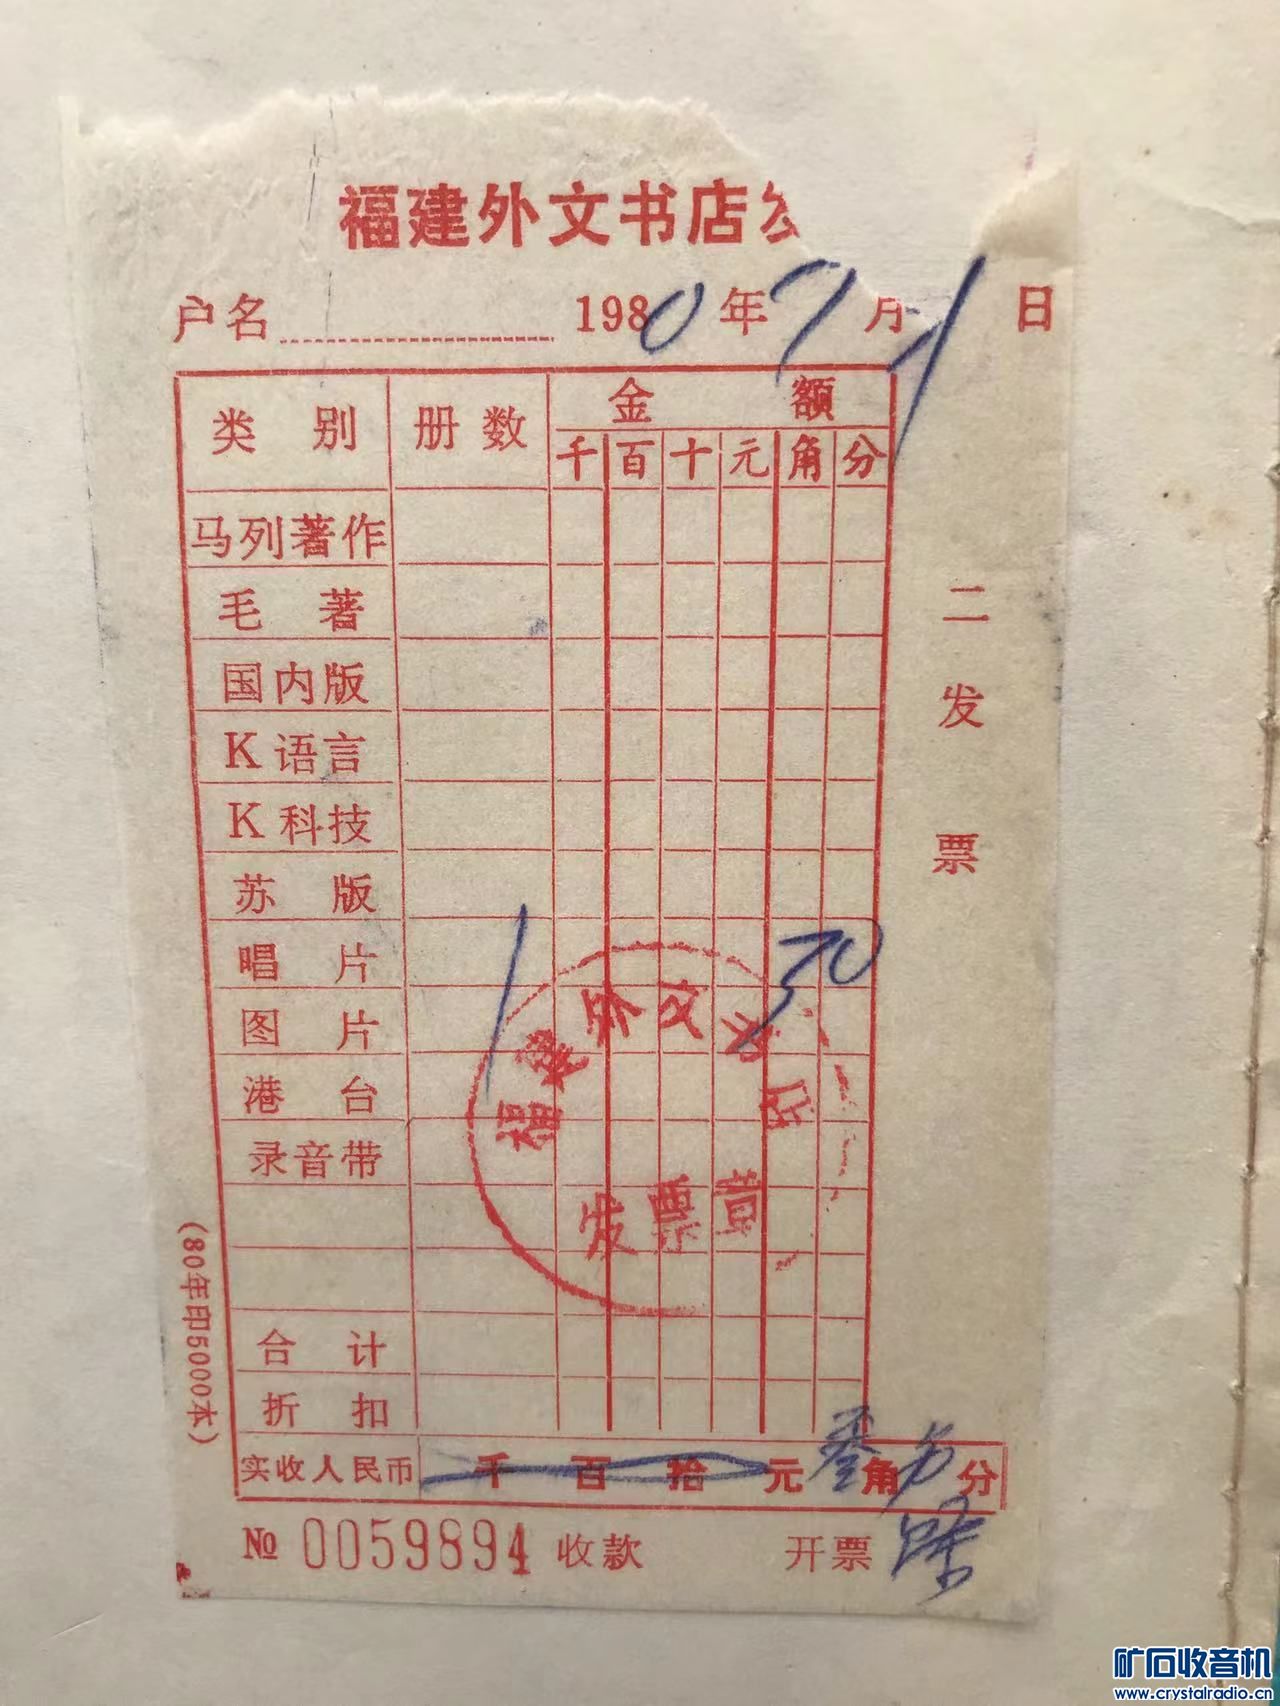 福建外文书店
户名 1980年7月1日
类别 册数 金额
千 百 十 元 角 分
马列著作
毛著
国内版
K语言
K科技
苏版
唱片
图片
港台
录音带
合计
折扣
实收人民币 千 百 拾 元 叁 角 分
№ 0059894 收款 开票
二发票
(80年印5000本)
福建外文书店
发票章
1
30
矿石收音机
www.crystalradio.cn